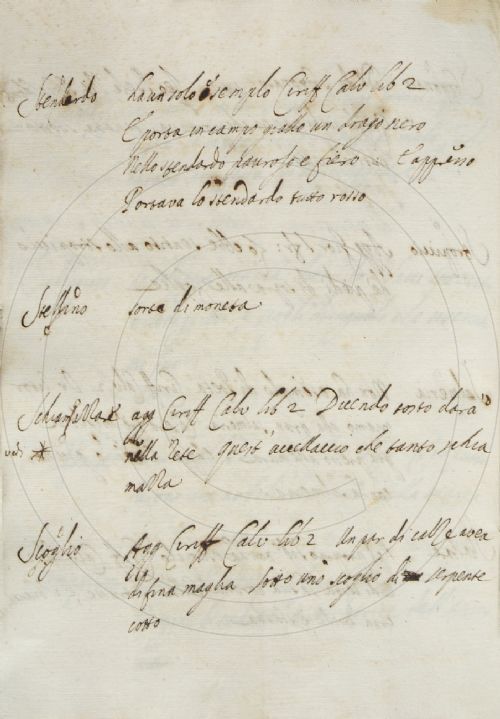 Stendardo ha un solo esemplo Ciriff Calv lib 2
E porta in campo giallo un drago nero
Nello stendardo pauroso e fiero E appresso
Portava lo stendardo tutto rosso
sorte di moneta
agg Ciriff Calv lib 2 Dicendo tosto dara
vedi nella rete quest uccellaccio che tanto schia
mazza
Scoglio Agg Ciriff Calv lib 2 Un par di calze avea
di fina maglia sotto uno scoglio di serpente
cotto